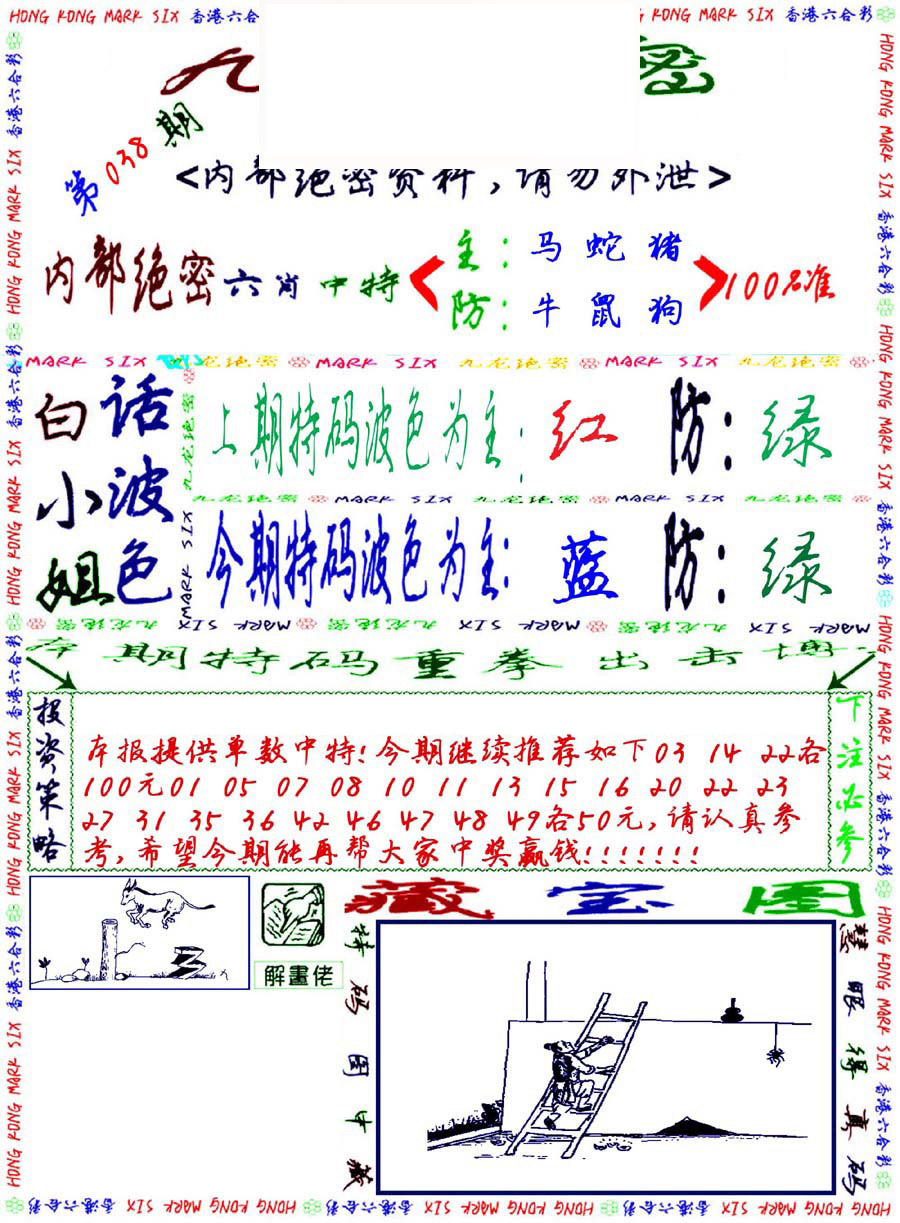 HONG KONG MARK SIX 香港六合彩
KONG MARK SIX 香港六合彩
九
密
第038期
<内部绝密资料,请勿外泄>
内部绝密六肖中特
主:马 蛇 猪
防:牛 鼠 狗
100名准
MARK SIX 九龙绝密 MARK SIX 九龙绝密 MARK SIX 九龙绝密
白话
小波
姐色
九龙绝密
上期特码波色为主:红 防:绿
九龙绝密 MARK SIX 九龙绝密 MARK SIX 九龙绝密
MARK SIX
今期特码波色为主:蓝 防:绿
九龙绝密 MARK SIX 九龙绝密 MARK SIX 九龙绝密 MARK SIX
期特码重拳出击
投资策略
本报提供单数中特!今期继续推荐如下03 14 22各
100元01 05 07 08 10 11 13 15 16 20 22 23
27 31 35 36 42 46 47 48 49各50元,请认真参
考,希望今期能再帮大家中奖赢钱!!!!!!!
下注必参
解畫佬
藏宝图
特码图中藏
慧眼得真码
HONG KONG MARK SIX 香港六合彩